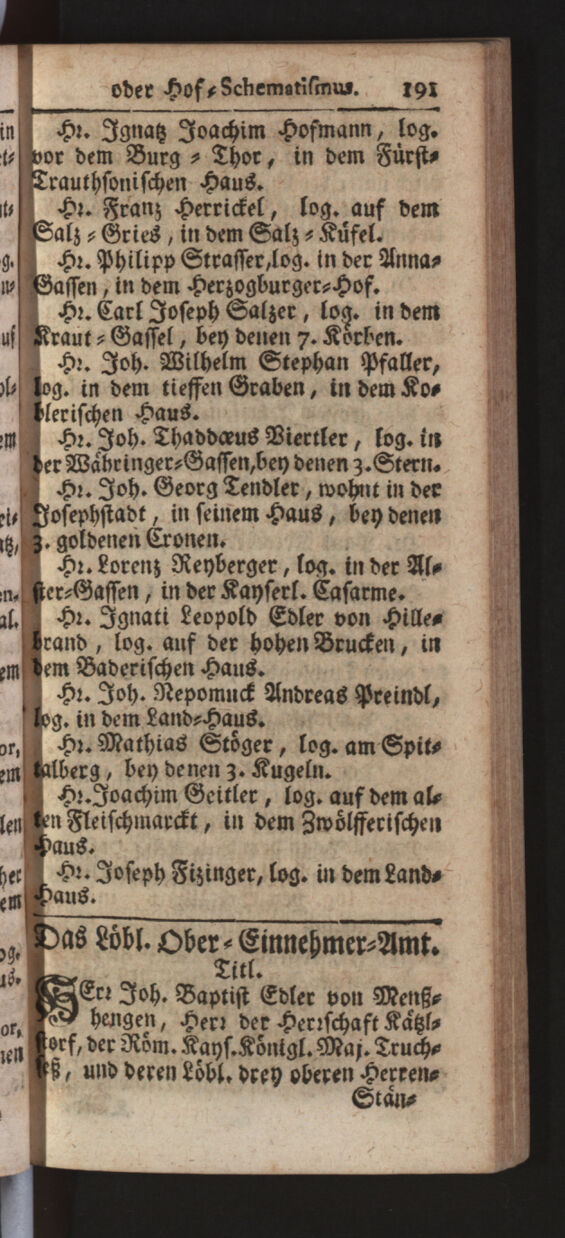 oder Hof-Schematismus. 191
Hr. Ignatz Joachim Hofmann, log.
vor dem Burg-Thor, in dem Fürst-
Trauthsonischen Haus.
Hr. Franz Herrickel, log. auf dem
Salz-Gries, in dem Salz-Küfel.
Hr. Philipp Strasser, log. in der Anna-
Gassen, in dem Herzogburger-Hof.
Hr. Carl Joseph Salzer, log. in dem
Kraut-Gassel, bey denen 7. Körben.
Hr. Joh. Wilhelm Stephan Pfaller,
log. in dem tieffen Graben, in dem Ko-
blerischen Haus.
Hr. Joh. Thaddæus Viertler, log. in
der Währinger-Gassen, bey denen 3. Stern.
Hr. Joh. Georg Tendler, wohnt in der
Josephstadt, in seinem Haus, bey denen
3. goldenen Cronen.
Hr. Lorenz Reyberger, log. in der Al-
ster-Gassen, in der Kayserl. Casarme.
Hr. Ignati Leopold Edler von Hille-
brand, log. auf der hohen Brucken, in
dem Baderischen Haus.
Hr. Joh. Nepomuck Andreas Preindl,
log. in dem Land-Haus.
Hr. Mathias Stöger, log. am Spit-
talberg, bey denen 3. Kugeln.
Hr. Joachim Geitler, log. auf dem al-
ten Fleischmarckt, in dem Zwölfferischen
Haus.
Hr. Joseph Fizinger, log. in dem Land-
Haus.
Das Löbl. Ober-Einnehmer-Amt.
Titl.
HErr Joh. Baptist Edler von Menß-
hengen, Herr der Herrschaft Kätzl-
storf, der Röm. Kays. Königl. Maj. Truch-
seß, und deren Löbl. drey oberen Herren-
Stän-